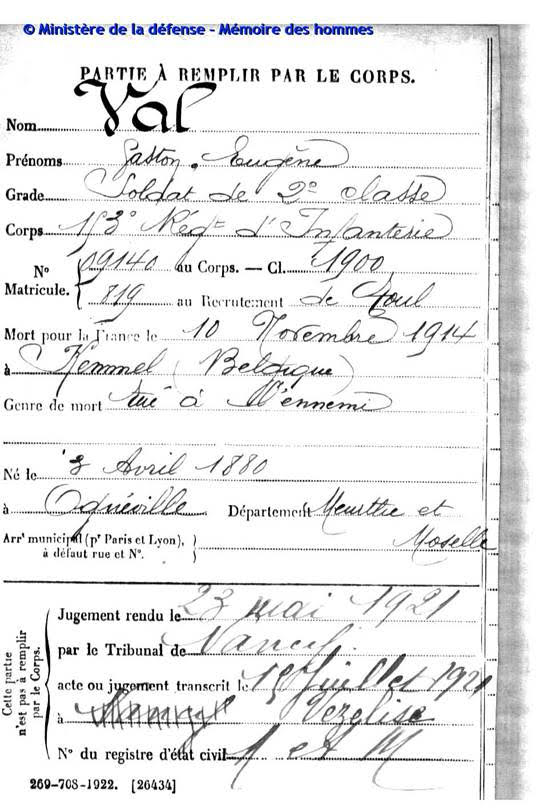 © Ministère de la défense - Mémoire des hommes
PARTIE À REMPLIR PAR LE CORPS.
Nom Val
Prénoms Gaston Eugène
Grade Soldat de 2e classe
Corps 153e Régt d'Infanterie
No 09140 au Corps. — Cl. 1900
Matricule. 819 au Recrutement de Toul
Mort pour la France le 10 Novembre 1914
à Kemmel (Belgique)
Genre de mort tué à l'ennemi
Né le 3 Avril 1880
à Ognéville Département Meurthe et
Moselle
Arrt municipal (pr Paris et Lyon),
à défaut rue et No.
Cette partie
n'est pas à remplir
par le Corps.
Jugement rendu le 23 mai 1921
par le Tribunal de Nancy
acte ou jugement transcrit le 15 Juillet 1921
à Vezelise
No du registre d'état civil M et M
269-708-1922. [26434]